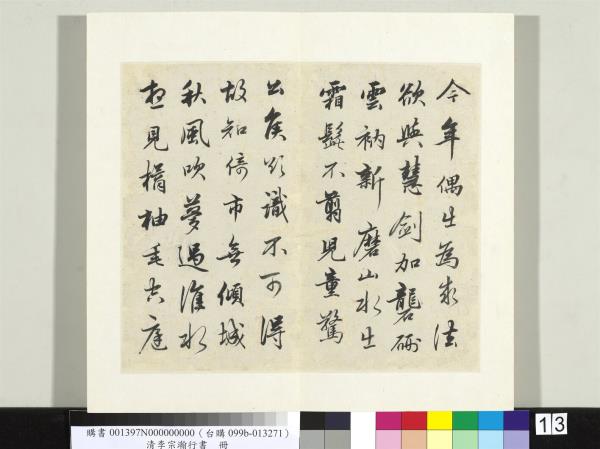 今年偶出為求法
欲與慧劍加礱硎
雲衲新磨山水出
霜髭不翦兒童驚
公侯欲識不可得
故知倚市無傾城
秋風吹夢過淮水
想見橘柚垂空庭
購書 001397N000000000（台購 099b-013271）
清李宗瀚行書 冊
13